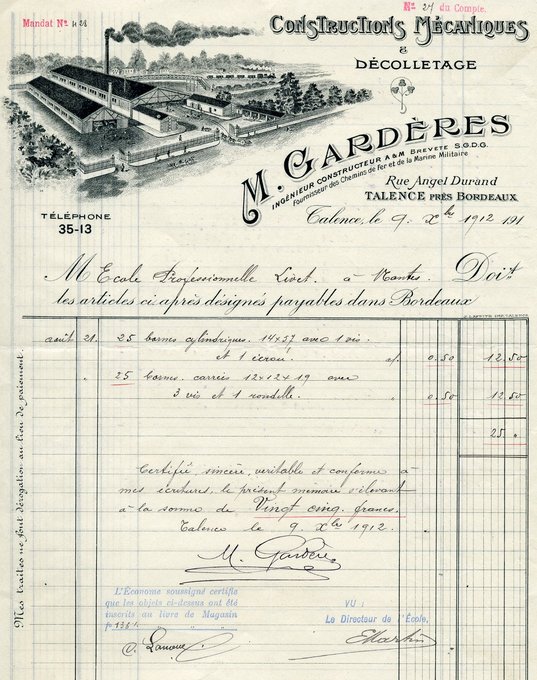 Mandat Nº 428
Nº 27 du Compte.
CONSTRUCTIONS MÉCANIQUES
&
DÉCOLLETAGE
M. GARDÈRES
INGÉNIEUR CONSTRUCTEUR A&M BREVETÉ S.G.D.G.
Fournisseur des Chemins de Fer et de la Marine Militaire
Rue Angel Durand
TALENCE PRÈS BORDEAUX
TÉLÉPHONE
35-13
Talence, le 9 Xbre 1912 191
M Ecole Professionnelle Livet. à Nantes. Doit
les articles ci après désignés payables dans Bordeaux
août 21. 25 bornes cylindriques. 14x37 avec 1 vis.
et 1 écrou. 0.50 12.50
25 bornes. carrées 12x12x19 avec
3 vis et 1 rondelle. 0.50 12.50
25 "
Certifié, sincère, véritable et conforme à
mes écritures, le présent mémoire s'élevant
à la somme de Vingt cinq francs.
Talence le 9. Xbre 1912.
M. Gardères
L'Économe soussigné certifie
que les objets ci-dessus ont été
inscrits au livre de Magasin
VU :
Le Directeur de l'École,
Martin
Mes traites ne font dérogation au lieu de paiement.